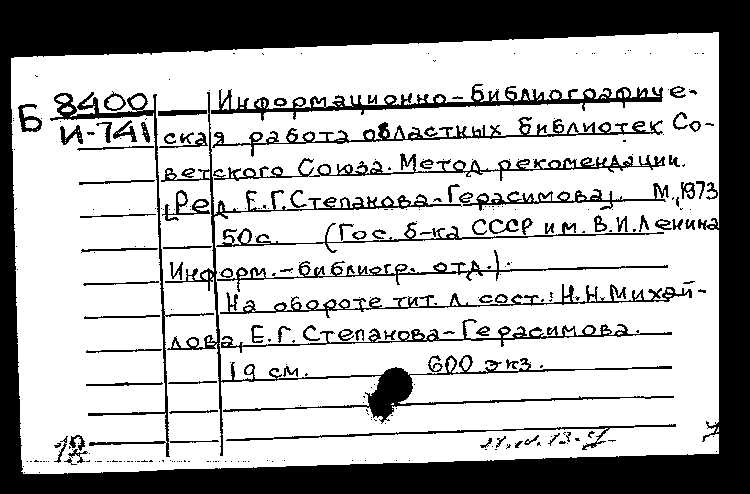 Б 8400 Информационно-библиографиче-
И-741 ская работа областных библиотек Со-
ветского Союза. Метод. рекомендации.
[Ред. Е.Г.Степанова-Герасимова]. М., 1973
50с. (Гос. б-ка СССР им. В.И.Ленина
Информ.-библиогр. отд.).
На обороте тит. л. сост.: Н.Н.Михай-
лова, Е.Г. Степанова-Герасимова.
19 см. 600 экз.
18